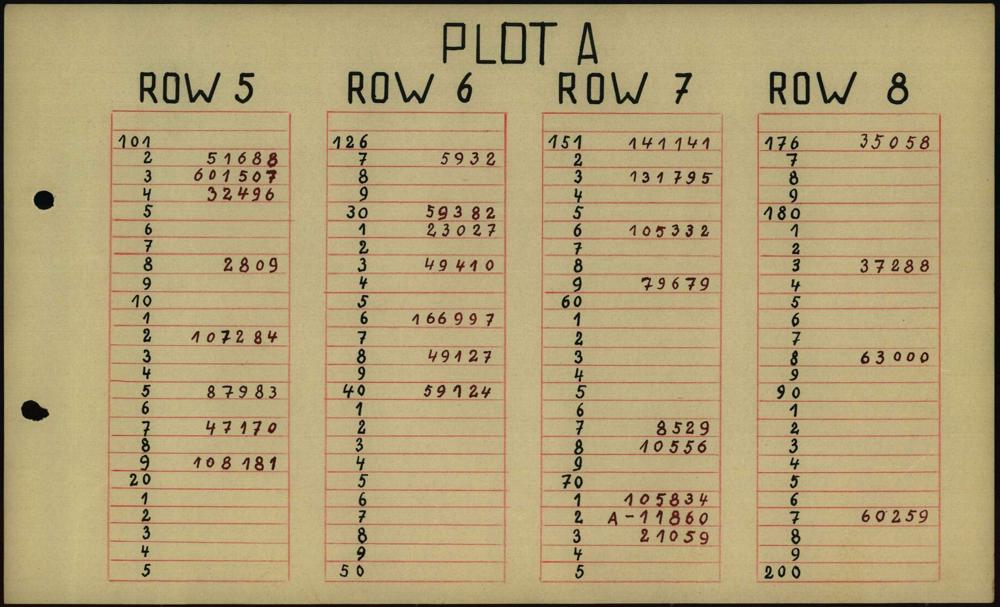 PLOT A
ROW 5
101
2 51688
3 601507
4 32496
5
6
7
8 2809
9
10
1
2 107284
3
4
5 87983
6
7 47170
8
9 108181
20
1
2
3
4
5
ROW 6
126
7 5932
8
9
30 59382
1 23027
2
3 49410
4
5
6 166997
7
8 49127
9
40 59124
1
2
3
4
5
6
7
8
9
50
ROW 7
151 141141
2
3 131795
4
5
6 105332
7
8
9 79679
60
1
2
3
4
5
6
7 8529
8 10556
9
70
1 105834
2 A-11860
3 21059
4
5
ROW 8
176 35058
7
8
9
180
1
2
3 37288
4
5
6
7
8 63000
9
90
1
2
3
4
5
6
7 60259
8
9
200